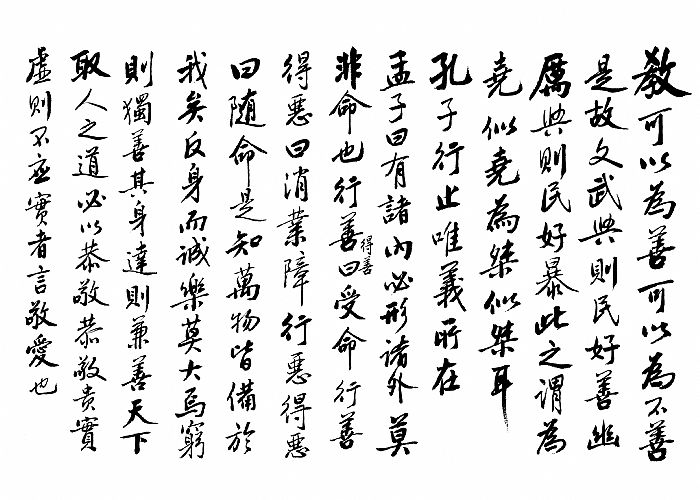 教可以為善可以為不善
是故文武興則民好善幽
厲興則民好暴此之謂為
堯似堯為桀似桀耳
孔子行止唯義所在
孟子曰有諸內必形諸外莫
非命也行善得善曰受命行善
得惡曰消業障行惡得惡
曰随命是知萬物皆備於
我矣反身而誠樂莫大焉窮
則獨善其身達則兼善天下
取人之道必以恭敬恭敬貴實
虛則不应實者言敬愛也